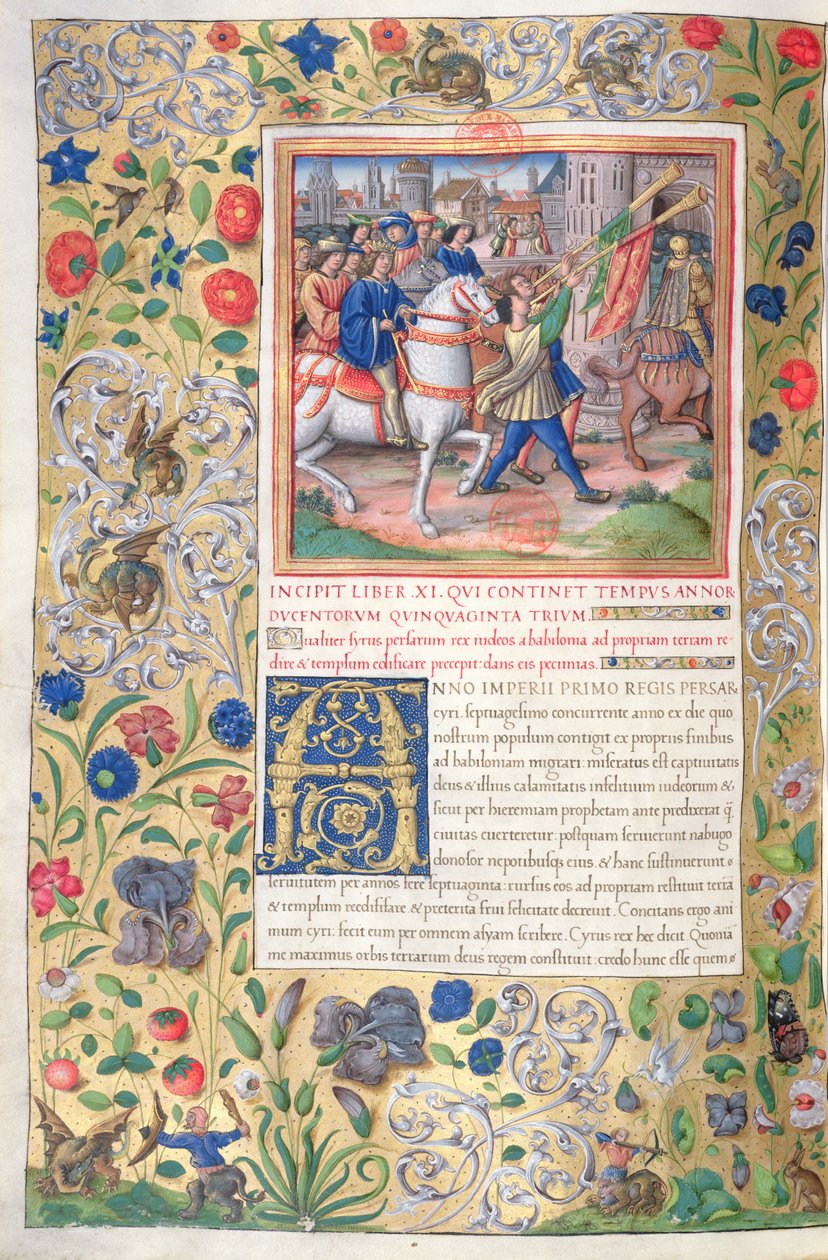 INCIPIT LIBER.XI.QVI CONTINET TEMPVS ANNOR
DVCENTORVM QVINQVAGINTA TRIVM.
Qualiter syrus persarum rex iudeos a babilonia ad propriam terram re-
dire & templum edificare precepit: dans eis pecunias.
ANNO IMPERII PRIMO REGIS PERSAR
cyri. septuagesimo concurrente anno ex die quo
nostrum populum contigit ex propriis finibus
ad babiloniam migrari: miseratus est captiuitatis
deus & illius calamitatis infelitium iudeorum &
sicut per hieremiam prophetam ante predixerat q̄
ciuitas euerteretur: postquam seruierunt nabugo
donosor nepotibusq; eius. & hanc sustinuerunt
seruitutem per annos fere septuaginta: rursus eos ad propriam restituit terrā
& templum reedifisare & preterita frui felicitate decreuit. Concitans ergo ani
mum cyri: fecit eum per omnem asyam scribere. Cyrus rex hec dicit. Quoniā
me maximus orbis terrarum deus regem constituit: credo hunc esse quem